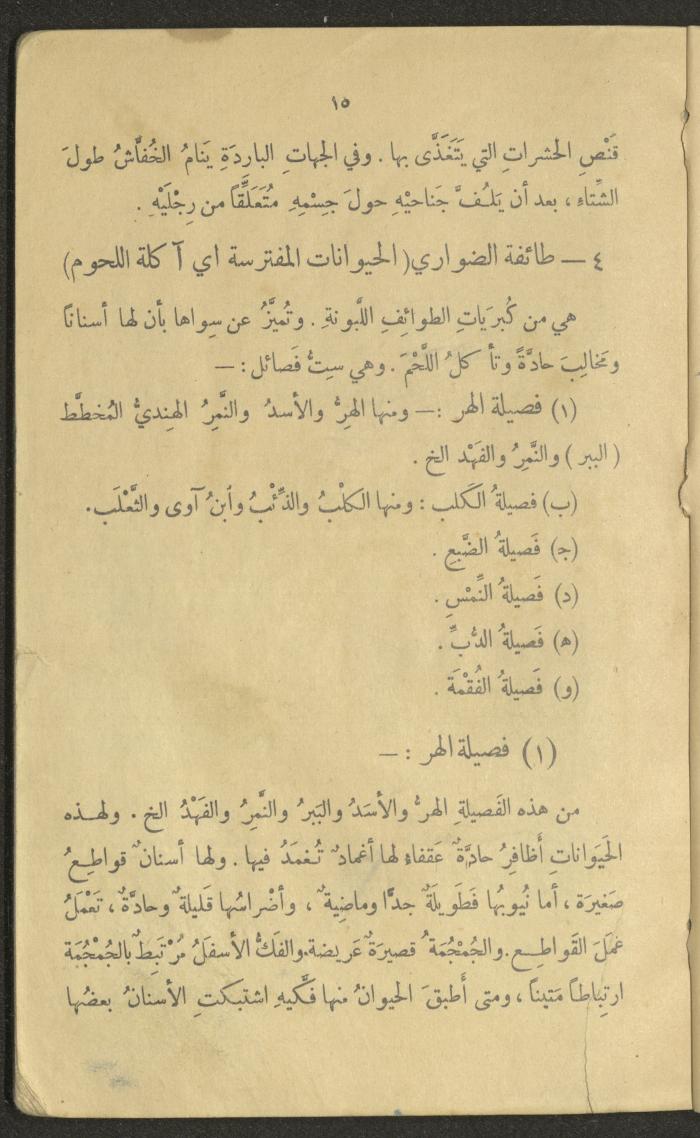 ١٥
قَنْصِ الحشراتِ التي يَتَغَذَّى بها . وفي الجهاتِ البارِدَةِ يَنامُ الخُفَّاشُ طولَ
الشِّتاءِ ، بعد أن يَلُفَّ جَناحيْهِ حولَ جِسْمِهِ مُتَعَلِّقًا من رِجْلَيْهِ .
٤ — طائفة الضواري ( الحيوانات المفترسة اي آكلة اللحوم )
هي من كُبرَيَاتِ الطوائِفِ اللَّبونةِ . وتُميَّزُ عن سِواها بأن لها أسنانًا
ومَخالِبَ حادَّةً وتأكلُ اللَّحْمَ . وهي سِتُّ فَصائل : —
(١) فصيلة الهر : — ومنها الهِرُّ والأسدُ والنَّمِرُ الهِنديُّ المُخطَّط
( الببر ) والنَّمِرُ والفَهْد الخ .
(ب) فصيلةُ الكَلب : ومنها الكلْبُ والذِّئْبُ وابنُ آوى والثَّعْلَب .
(ج) فَصيلةُ الضَّبعِ .
(د) فَصيلةُ النِّمْسِ .
(ه) فَصيلةُ الدُّبِّ .
(و) فَصيلةُ الفُقْمَة .
(١) فصيلة الهر : —
من هذه الفَصيلةِ الهرُّ والأسَدُ والبَبرُ والنَّمِرُ والفَهْدُ الخ . ولهذه
الحَيَواناتِ أظافِرُ حادَّةٌ عَقفاءِ لها أغمادٌ تُغمَدُ فيها . ولها أسنانٌ قواطِعُ
صَغيرَة ، أما نُيوبُها فَطَويلَةٌ جدًّا وماضِيةٌ ، وأضْراسُها قَليلةٌ وحادَّةٌ ، تَعْمَلُ
عَمَلَ القَواطِع . والجُمْجُمَةُ قصيرَةٌ عَريضة . والفَكُّ الأسفَلُ مُرْتَبِطٌ بالجُمْجُمَة
ارتِباطاً مَتيناً ، ومتى أَطبقَ الحيوانُ منها فَكَّيهِ اشتبكتِ الأسنانُ بعضُها